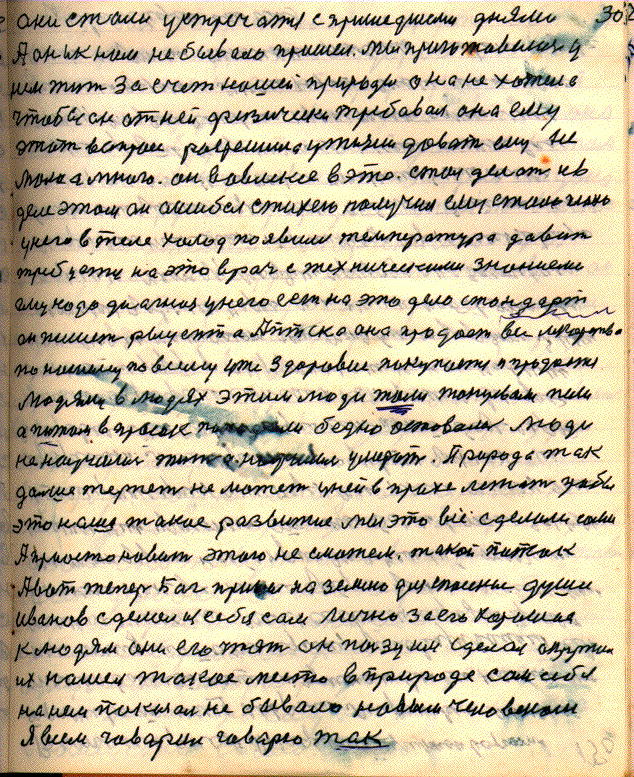 они стали устречатя с пришедшими днями 307
А он к ним не бывало пришел. мы приготовились у
ним жит За счет нашей природы она не хотела
чтобы он от ней физически требовал она ему
этот вопрос розрешила ему не
мала а много. он вовлекся в это. стал делат но
деле этом он ошибся стихею получил ему стало
унего в теле холод появилис температура давит
требуется на это врач с техническими знаниеми
ему надо диагноз унего ест на это дело стандарт
он пишет рецепт а Аптека она продает все лекарства
по нашему по всему уже здоровие покупается и продается
людями в людях этим люди жили пили
а потом в бедно оставалис люди
не научилис жит а научилис умерат. Природа так
далше терпет не может у ней в прахе лежат
это наша такое развитие мы это всё сделали сами
А приостоновит этого не сможем. такой поток
А вот тепер Бог пришел на землю для спасение души.
Иванов сделал себя сам лично за его хорошее
к людям они его он им сделал
их нашел такое место в природе сам себя
на нем показал не бывало новым человеком
Я всем говорил говорю так